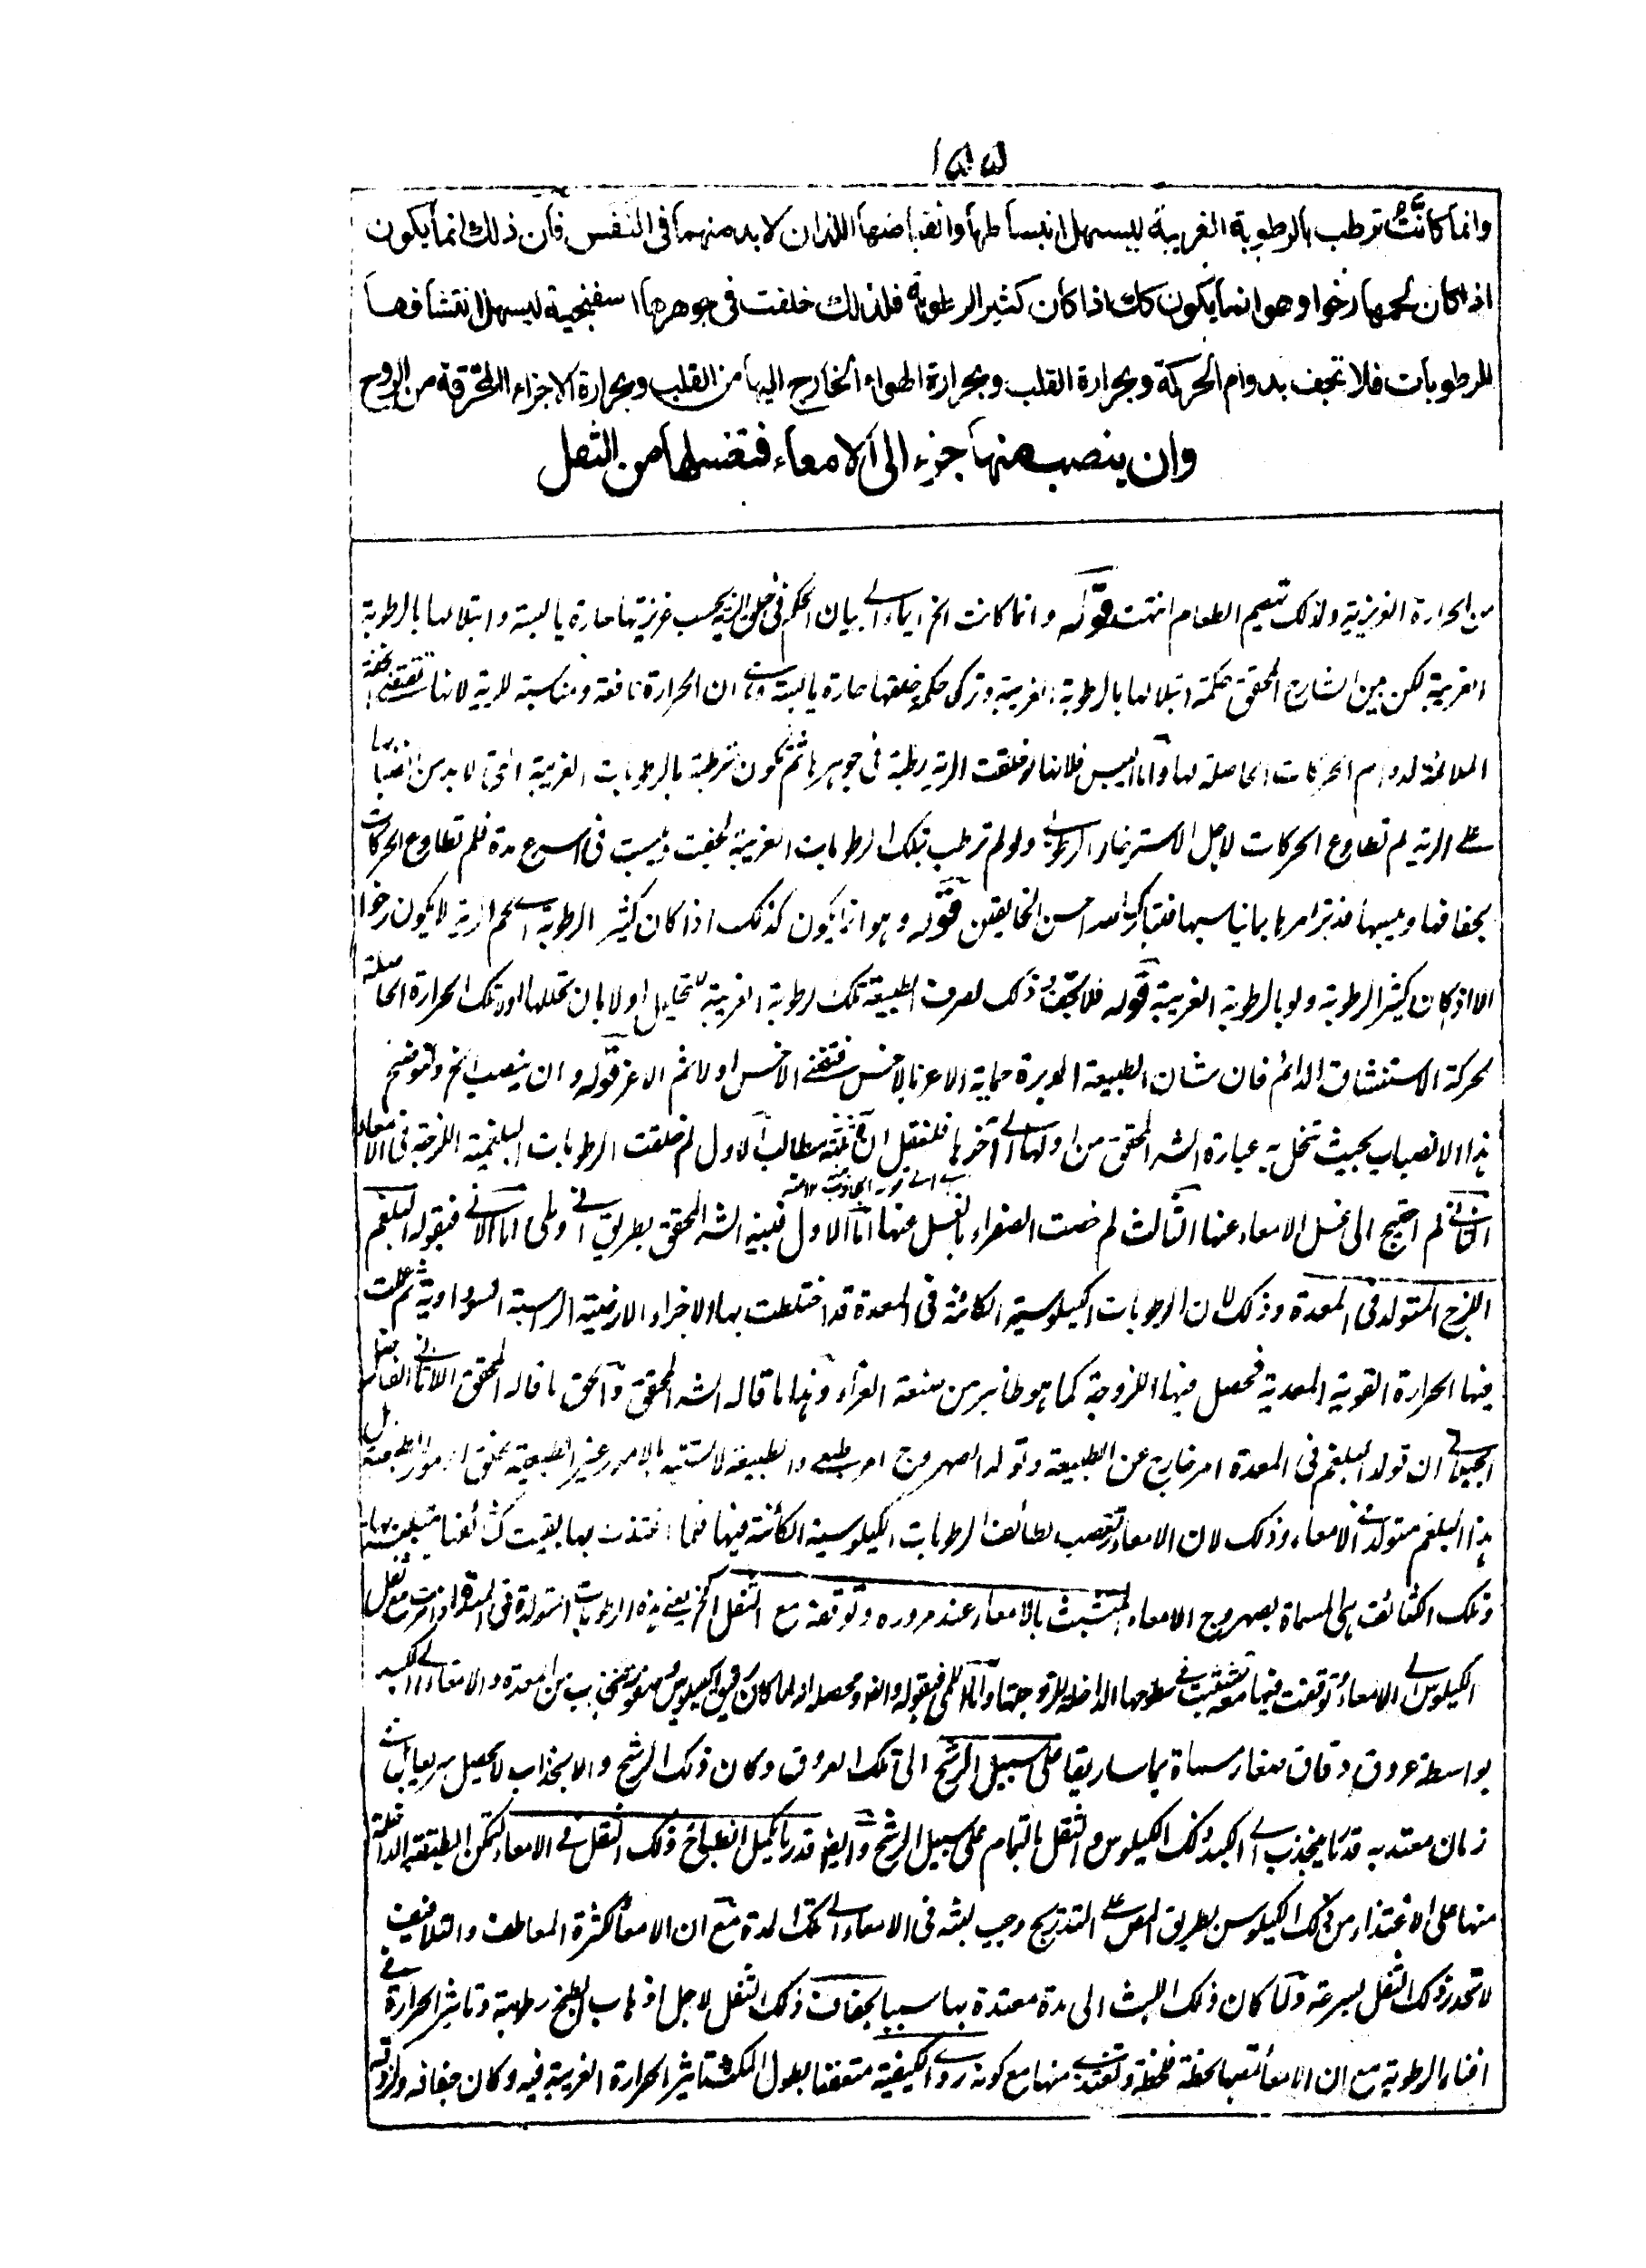 ١٥٥
وانما كانت ترطب بالرطوبة الغريبة ليسهل انبساطها وانقباضها اللذان لابد منهما فى النفس فان ذلك انما يكون
اذا كان لحمها رخوا وهو انما يكون كك اذا كان كثير الرطوبة فلذلك خلقت فى جوهرها اسفنجية ليسهل انتشافها
للرطوبات فلا تجف بدوام الحركة وبحرارة القلب وبحرارة الهواء الخارج اليها من القلب وبحرارة الاجزاء المحترقة من الروح
وان ينصب منها جزء الى الامعاء فتغسلها من الثفل
من الحرارة الغريزية ولذلك تهيم الطعام انتهت قوله وانما كانت الخ ايماء الى بيان الحكم فى خلق الرية بحسب غريزتها حارة يابسة وابتلالها بالرطوبة
الغريبة لكن بين الشارح المحقق حكمة ابتلالها بالرطوبة الغريبة وترك حكمة خلقها حارة يابسة وهى ان الحرارة نافعة ومناسبة للرية لانها تقتضى الخفة
الملائمة لدوام الحركات الحاصلة لها واما اليبس فلانها لو خلقت الرية رطبة فى جوهرها ثم تكون مترطبة بالرطوبات الغريبة التى لابد من انصبابها
على الرية لم تطاوع الحركات لاجل الاسترخاء الرطوبى ولو لم ترطب بتلك الرطوبات الغريبة لجفت ويبست فى اسرع مدة فلم تطاوع الحركات
بجفافها ويبسها فدبر امرها بما يناسبها فتبارك الله احسن الخالقين قوله وهو انما يكون كذلك اذا كان كثير الرطوبة اى لحم الرية لا يكون رخوا
الا اذا كان كثير الرطوبة ولو بالرطوبة الغريبة قوله فلا تجف وذلك لصرف الطبيعة تلك الرطوبة الغريبة للتحليل اولا بان تحللها اولا تلك الحرارة الحاصلة
لحركة الاستنشاق الدائم فان شان الطبيعة المدبرة حماية الاعز بالاخس فتفنى الاخس اولا ثم الاعز قوله وان ينصب الخ ولتوضح
هذا الانصباب بحيث تنحل به عبارة الشه المحقق من اولها الى آخرها فلنقل ان فيه ثلثة مطالب الاول لم خلقت الرطوبات البلغمية اللزجة فى الامعاء
الثانى لم احتيج الى غسل الامعاء عنها الثالث لم خصت الصفراء بالغسل عنها اما الاول فبينه الشه المحقق بطريق انى ولمى اما الانى فبقوله البلغم
اللزج المتولد فى المعدة وذلك لان الرطوبات الكيلوسية الكائنة فى المعدة قد اختلطت بها الاجزاء الارضية الراسبة السوداوية ثم عملت
فيها الحرارة القوية المعدية فحصل فيها اللزوجة كما هو ظاهر من صنعة الغراء وهذا ما قاله الشه المحقق والحق ما قاله المحقق الفاضل
الجيلانى ان تولد البلغم فى المعدة امر خارج عن الطبيعة وتولد الصهروج امر طبعى والطبيعة لا تستتبه بالامور غير الطبيعية بخلق الامور الطبيعية بل
هذا البلغم متولد فى الامعاء وذلك لان الامعاء تمتص لطائف الرطوبات الكيلوسية الكائنة فيها فما اغتذت بها بقيت كثائفها
وتلك الكثائف هى المسماة بصهروج الامعاء المتشبث بالامعاء عند مروره وتوقفه مع الثفل الخ يعنى هذه الرطوبات المتولدة فى المعدة اذا مرت مع ثفل
الكيلوس الى الامعاء وتوقفت فيها معه تشبثت فى سطوحها الداخلة للزوجتها واما اللمى فبقوله وايضا ومحصله انه لما كان رقيق الكيلوس وصفوته ينجذب من المعدة والامعاء الى الكبد
بواسطة عروق دقاق صغار مسماة بماساريقا على سبيل الرشح الى تلك العروق وكان ذلك الرشح والانجذاب لا يحصل سريعا بل فى
زمان معتد به قدر ما ينجذب الى الكبد ذلك الكيلوس والثفل بالتمام على سبيل الرشح وايضا قدر ما يكمل انطباخ ذلك الثفل فى الامعاء لتمكن الطبقة الداخلة
منها على الاغتذاء من ذلك الكيلوس بطريق المص على التدريج وجب لبثه فى الامعاء الى تلك المدة مع ان الامعاء لكثرة المعاطف والتلافيف
لا تحدر ذلك الثفل بسرعة ولما كان ذلك اللبث الى مدة معتدة بها سببا لجفاف ذلك الثفل لاجل اذهاب الطبخ رطوبته وتاثير الحرارة فى
افناء الرطوبة مع ان الامعاء تمتصها لحظة فلحظة وتغتذى منها مع كونه ردى الكيفية متعفنا بطول المكث وتاثير الحرارة الغريبة فيه وكان جفافه ولزوجته